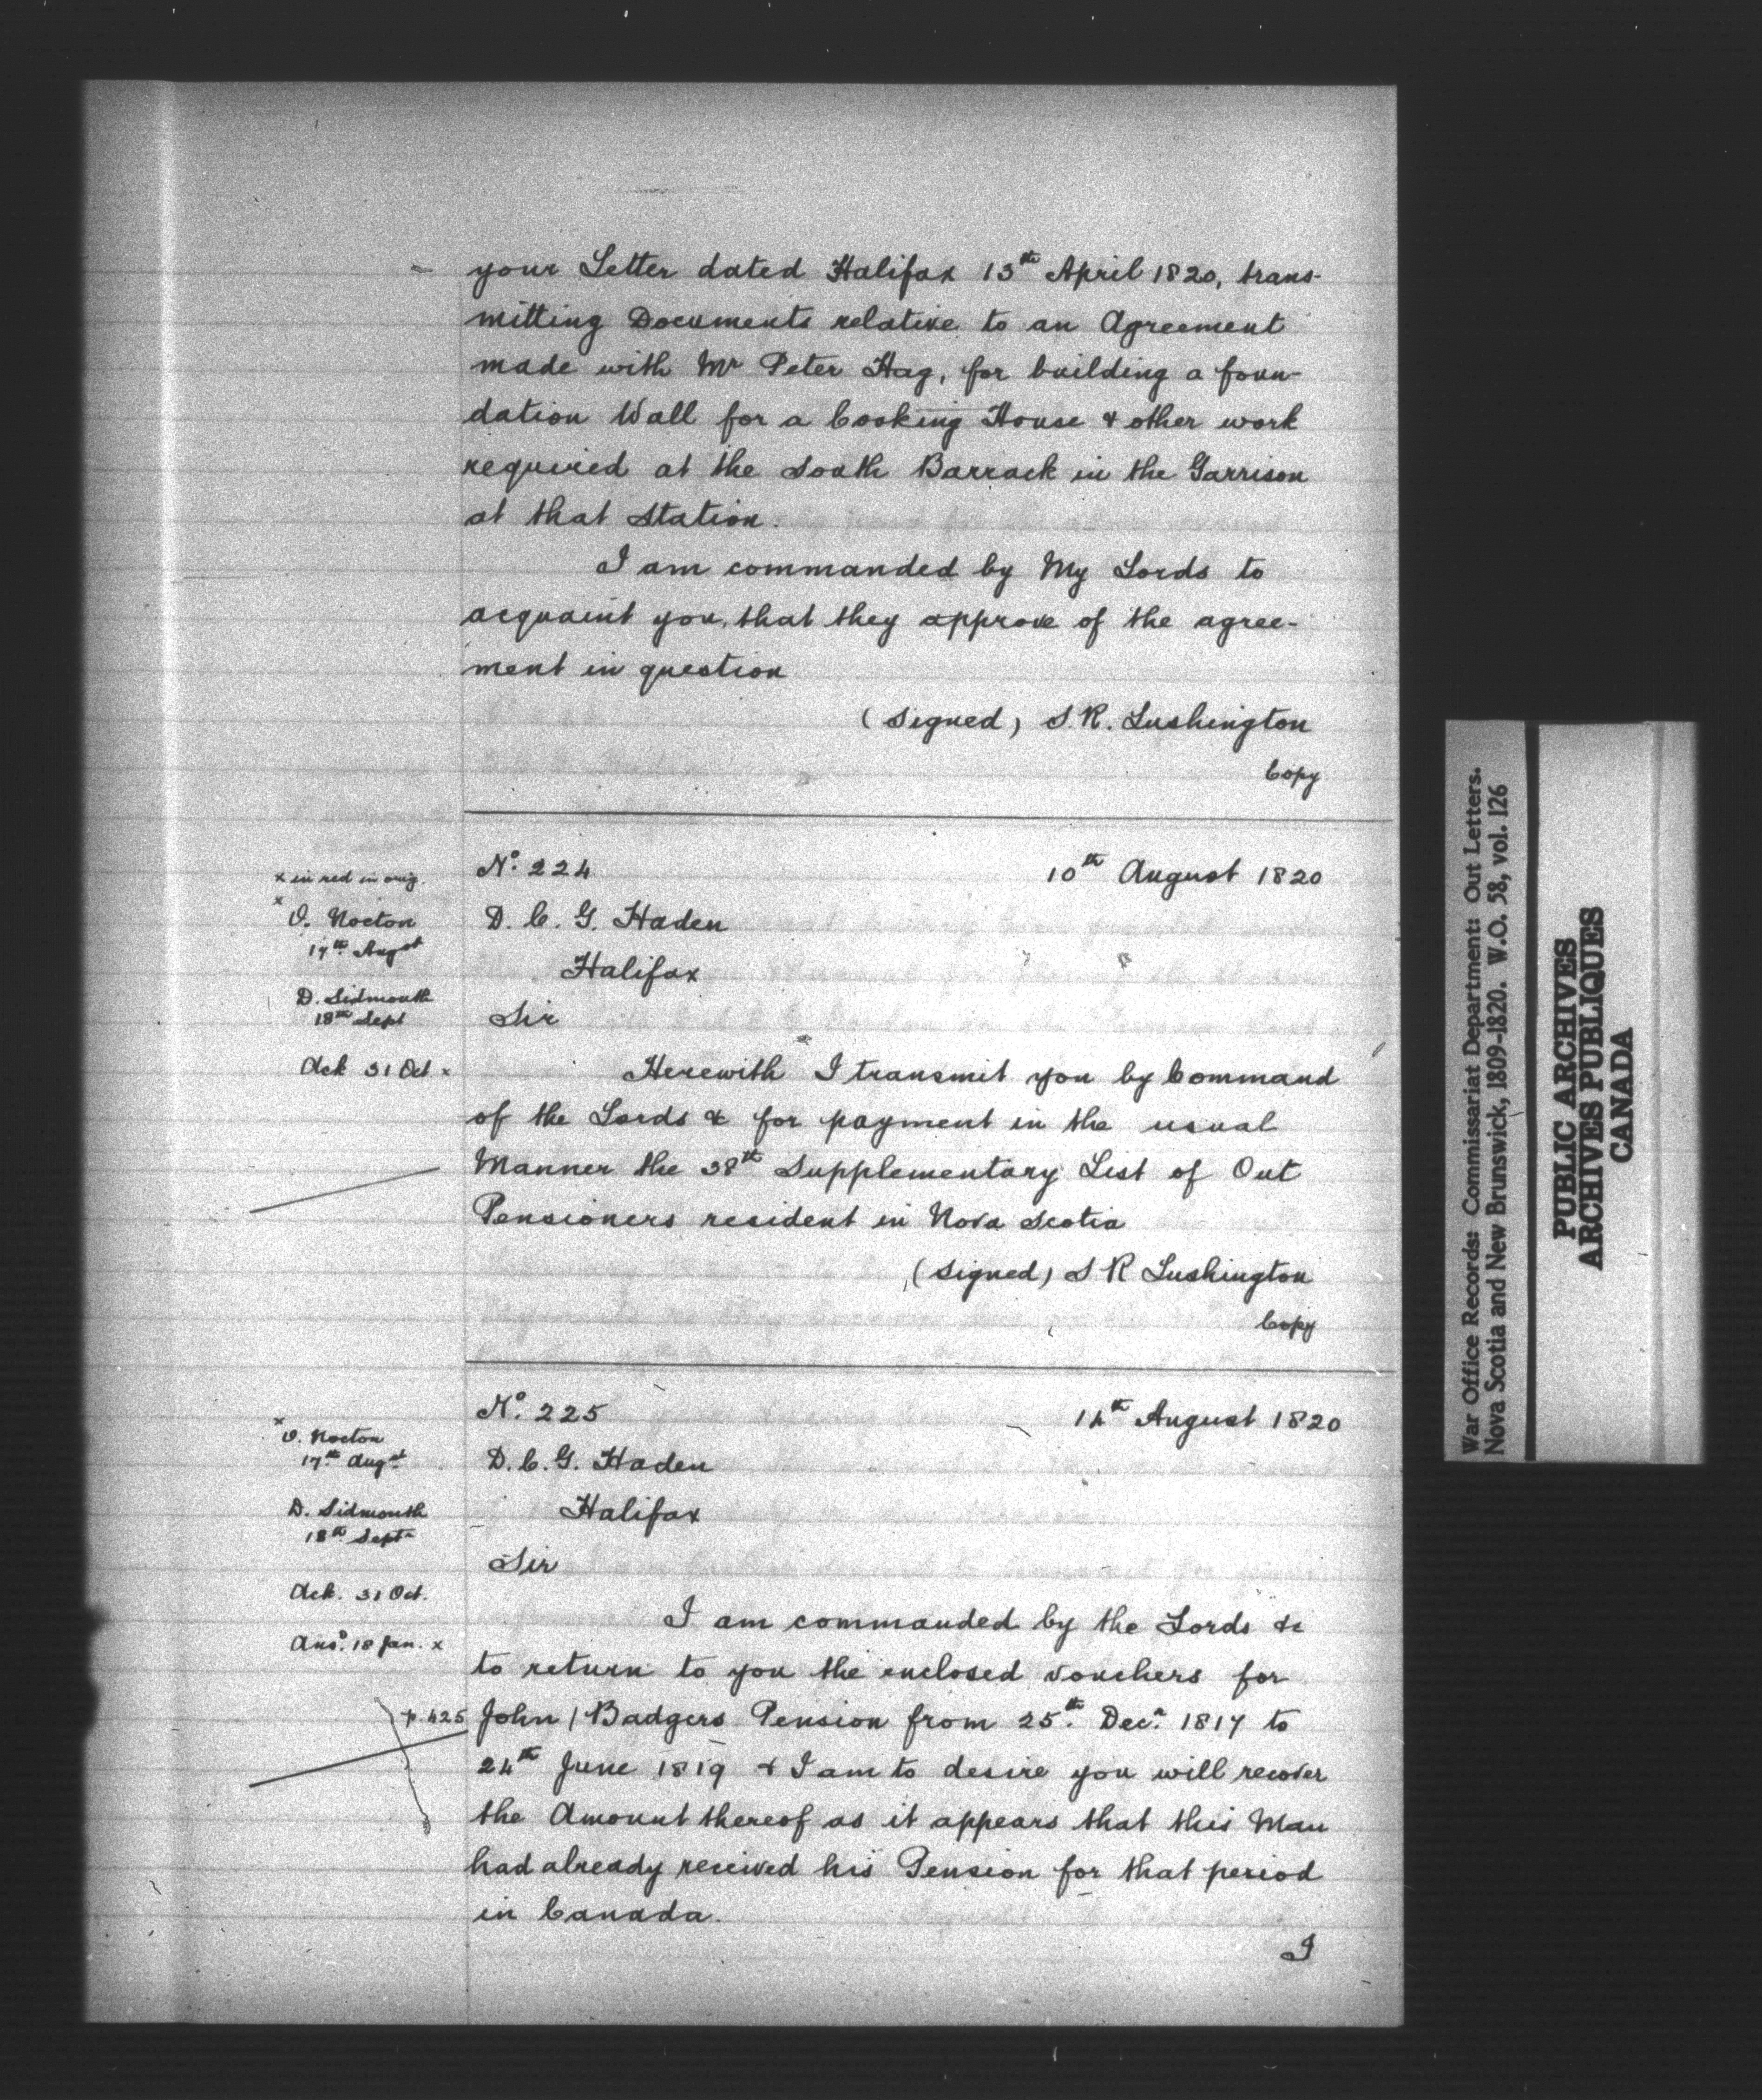 your Letter dated Halifax 13th April 1820, trans-
mitting Documents relative to an Agreement
made with Mr Peter Hag, for building a foun-
dation Wall for a Cooking House & other work
required at the South Barrack in the Garrison
at that Station.
I am commanded by My Lords to
acquaint you, that they approve of the agree-
ment in question
(Signed) S. R. Lushington
Copy
x in red in orig.
x
O. Nocton
17th Augst
D. Sidmouth
18th Sept
Ack 31 Oct x
No. 224 10th August 1820
D. C. G. Haden
Halifax
Sir
Herewith I transmit you by Command
of the Lords & for payment in the usual
Manner the 38th Supplementary List of Out
Pensioners resident in Nova Scotia
(Signed) S R Lushington
Copy
x
O. Nocton
17th Augst
D. Sidmouth
18th Septr
Ack. 31 Oct.
Ansd. 18 Jan. x
p. 425
No. 225 14th August 1820
D. C. G. Haden
Halifax
Sir
I am commanded by the Lords &c
to return to you the enclosed vouchers for
John / Badgers Pension from 25th. Decr. 1817 to
24th June 1819 & I am to desire you will recover
the Amount thereof as it appears that this Man
had already received his Pension for that period
in Canada.
I
War Office Records: Commissariat Department: Out Letters.
Nova Scotia and New Brunswick, 1809-1820. W.O. 58, vol. 126
PUBLIC ARCHIVES
ARCHIVES PUBLIQUES
CANADA